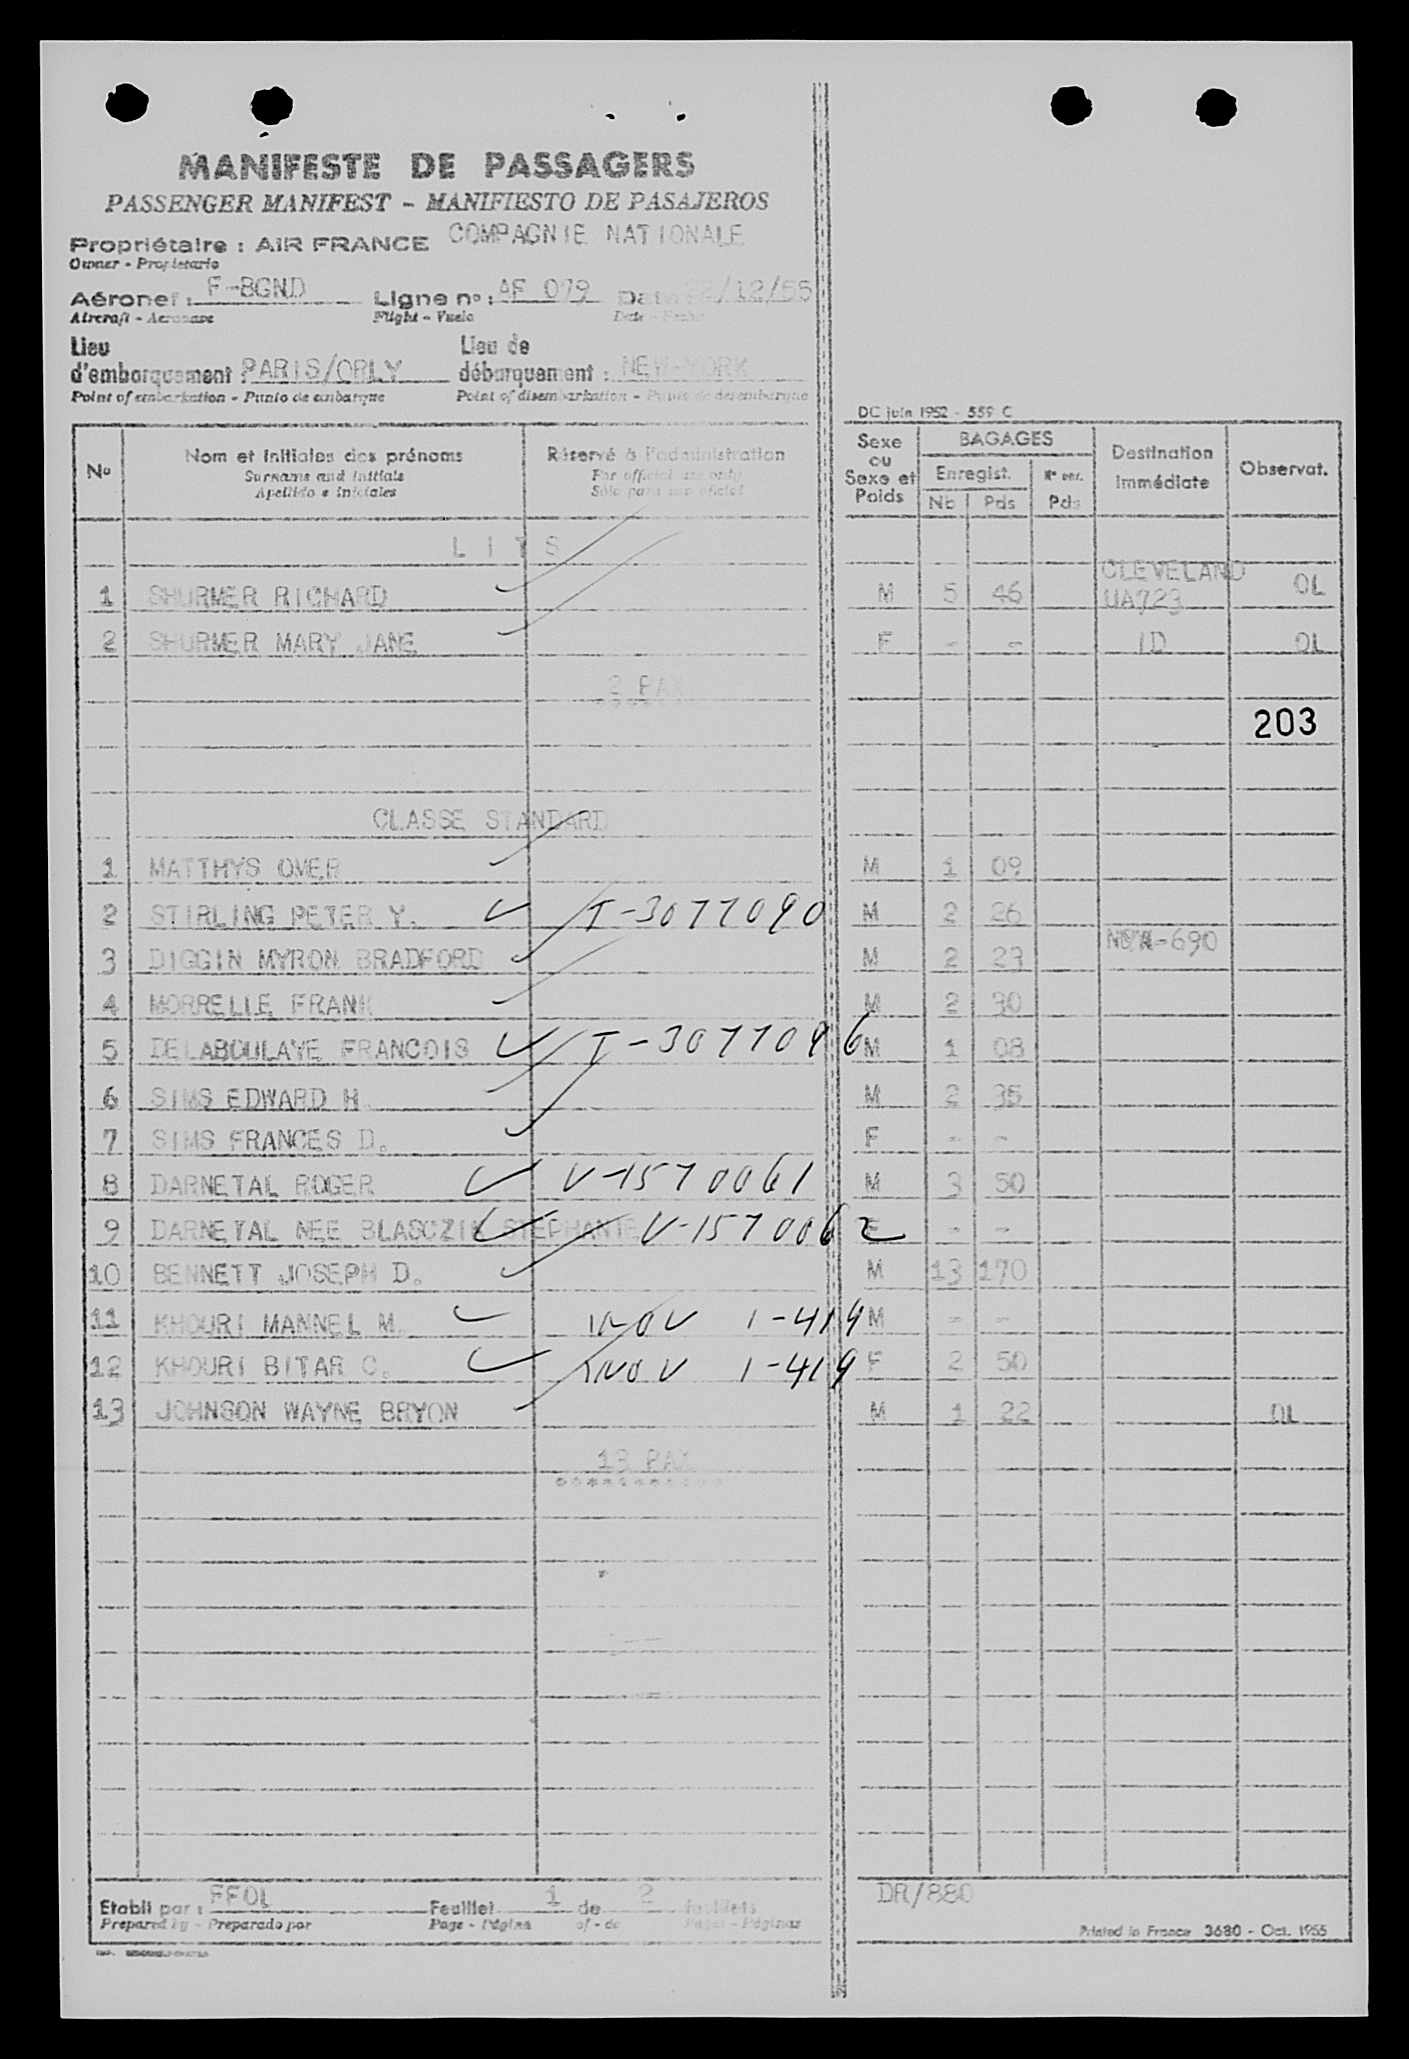 MANIFESTE DE PASSAGERS
PASSENGER MANIFEST - MANIFIESTO DE PASAJEROS
Propriétaire : AIR FRANCE COMPAGNIE NATIONALE
Owner - Propietario
Aéronef : F-BGND Ligne nº : AF 079 Date /12/55
Aircraft - Aeronave Flight - Vuelo Date - Fecha
Lieu d'embarquement : PARIS/ORLY Lieu de débarquement : NEW-YORK
Point of embarkation - Punto de embarque Point of disembarkation - Punto de desembarque
DC juin 1952 - 559 C
Nº Nom et initiales des prénoms Réservé à l'administration Sexe ou Sexe et Poids BAGAGES Enregist. Nb Pds Pds Destination immédiate Observat.
Surname and initials For official use only
Apellido e iniciales Sólo para uso oficial
L I T S
1 SHURMER RICHARD M 5 46 CLEVELAND UA723 OL
2 SHURMER MARY JANE F - - ID OL
2 PAX
203
CLASSE STANDARD
1 MATTHYS OMER M 1 09
2 STIRLING PETER Y. T-3077090 M 2 26
3 DIGGIN MYRON BRADFORD M 2 23 -690
4 MORRELLE FRANK M 2 30
5 DELABOULAYE FRANCOIS T-3077096 M 1 08
6 SIMS EDWARD H. M 2 35
7 SIMS FRANCES D. F - -
8 DARNETAL ROGER V-1570061 M 3 50
9 DARNETAL NEE BLASCZIK STEPHANIE V-1570062 F - -
10 BENNETT JOSEPH D. M 13 170
11 KHOURI MANNEL M. 1-419 M - -
12 KHOURI BITAR C. 1-419 F 2 50
13 JOHNSON WAYNE BRYON M 1 22 OL
13 PAX
***********
Etabli par : FFOL Feuillet 1 de 2 feuillets DR/880
Prepared by - Preparado por Page - Página of - de Pages - Páginas
Printed in France 3680 - Oct. 1955